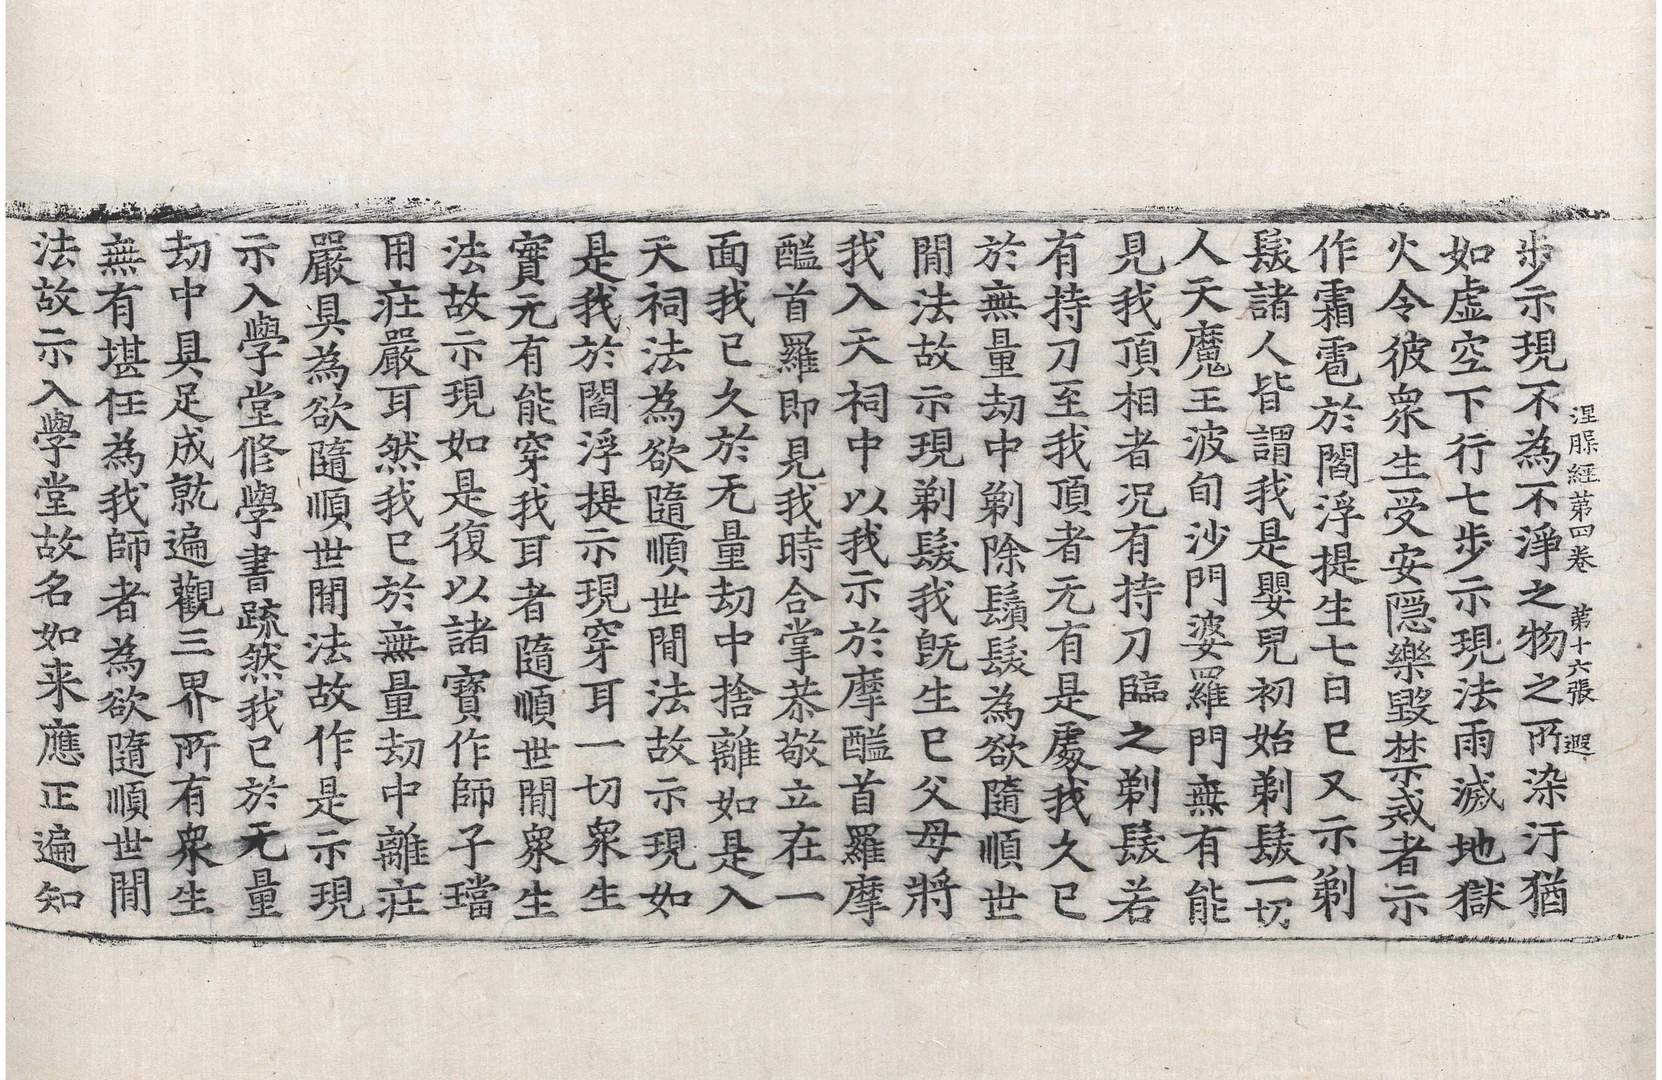 涅槃經第四卷 第十六張 遐
步示現不為不淨之物之所染汙猶
如虛空下行七步示現法雨滅地獄
火令彼衆生受安隱樂毀禁戒者示
作霜雹於閻浮提生七日已又示剃
髮諸人皆謂我是嬰兒初始剃髮一切
人天魔王波旬沙門婆羅門無有能
見我頂相者况有持刀臨之剃髮若
有持刀至我頂者无有是處我久已
於無量劫中剃除鬚髮為欲隨順世
閒法故示現剃髮我旣生已父母將
我入天祠中以我示於摩醯首羅摩
醯首羅即見我時合掌恭敬立在一
面我已久於无量劫中捨離如是入
天祠法為欲隨順世閒法故示現如
是我於閻浮提示現穿耳一切衆生
實无有能穿我耳者隨順世閒衆生
法故示現如是復以諸寶作師子璫
用莊嚴耳然我已於無量劫中離莊
嚴具為欲隨順世閒法故作是示現
示入學堂修學書疏然我已於无量
劫中具足成就遍觀三界所有衆生
無有堪任為我師者為欲隨順世閒
法故示入學堂故名如来應正遍知